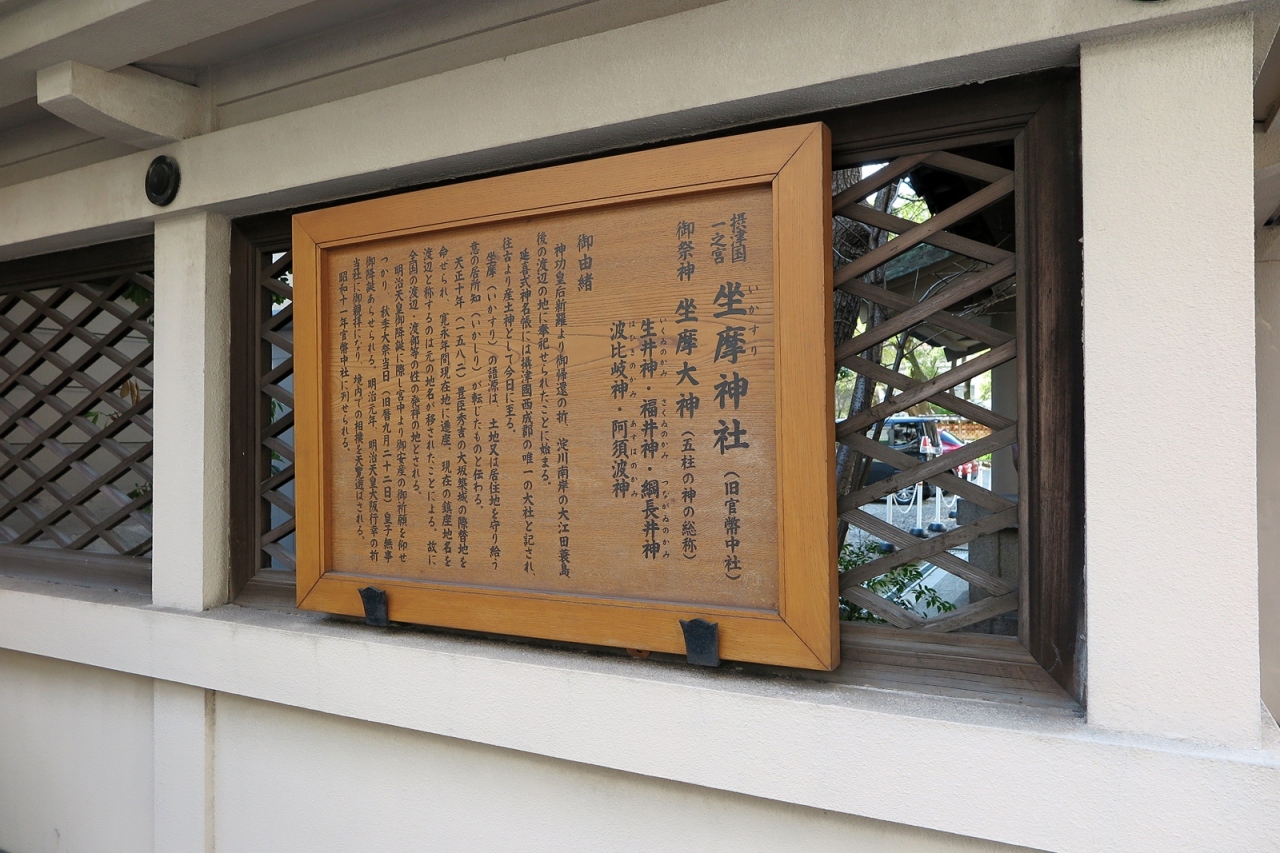 摂津国
一之宮
いかすり
坐摩神社(旧官幣中社)
御祭神 坐摩大神(五柱の神の総称)
いくゐのかみ さくゐのかみ つながゐのかみ
生井神・福井神・綱長井神
はひきのかみ あすはのかみ
波比岐神・阿須波神
御由緒
神功皇后新羅より御帰還の折、淀川南岸の大江田蓑島、
後の渡辺の地に奉祀せられたことに始まる。
延喜式神名帳には摂津國西成郡の唯一の大社と記され、
往古より産土神として今日に至る。
坐摩(いかすり)の語源は、土地又は居住地を守り給う
意の居所知(いかしり)が転じたものと伝わる。
天正十年(一五八二)豊臣秀吉の大坂築城の際替地を
命ぜられ、寛永年間現在地に遷座、現在の鎮座地名を
渡辺と称するのは元の地名が移されたことによる。故に
全国の渡辺、渡部等の姓の発祥の地とされる。
明治天皇御降誕に際し宮中より御安産の御祈願を仰せ
つかり、秋季大祭当日(旧暦九月二十二日)皇子無事
御降誕あらせられる。明治元年、明治天皇大阪行幸の折
当社に御親拝になり、境内での相撲を天覧遊ばされる。
昭和十一年官幣中社に列せられる。